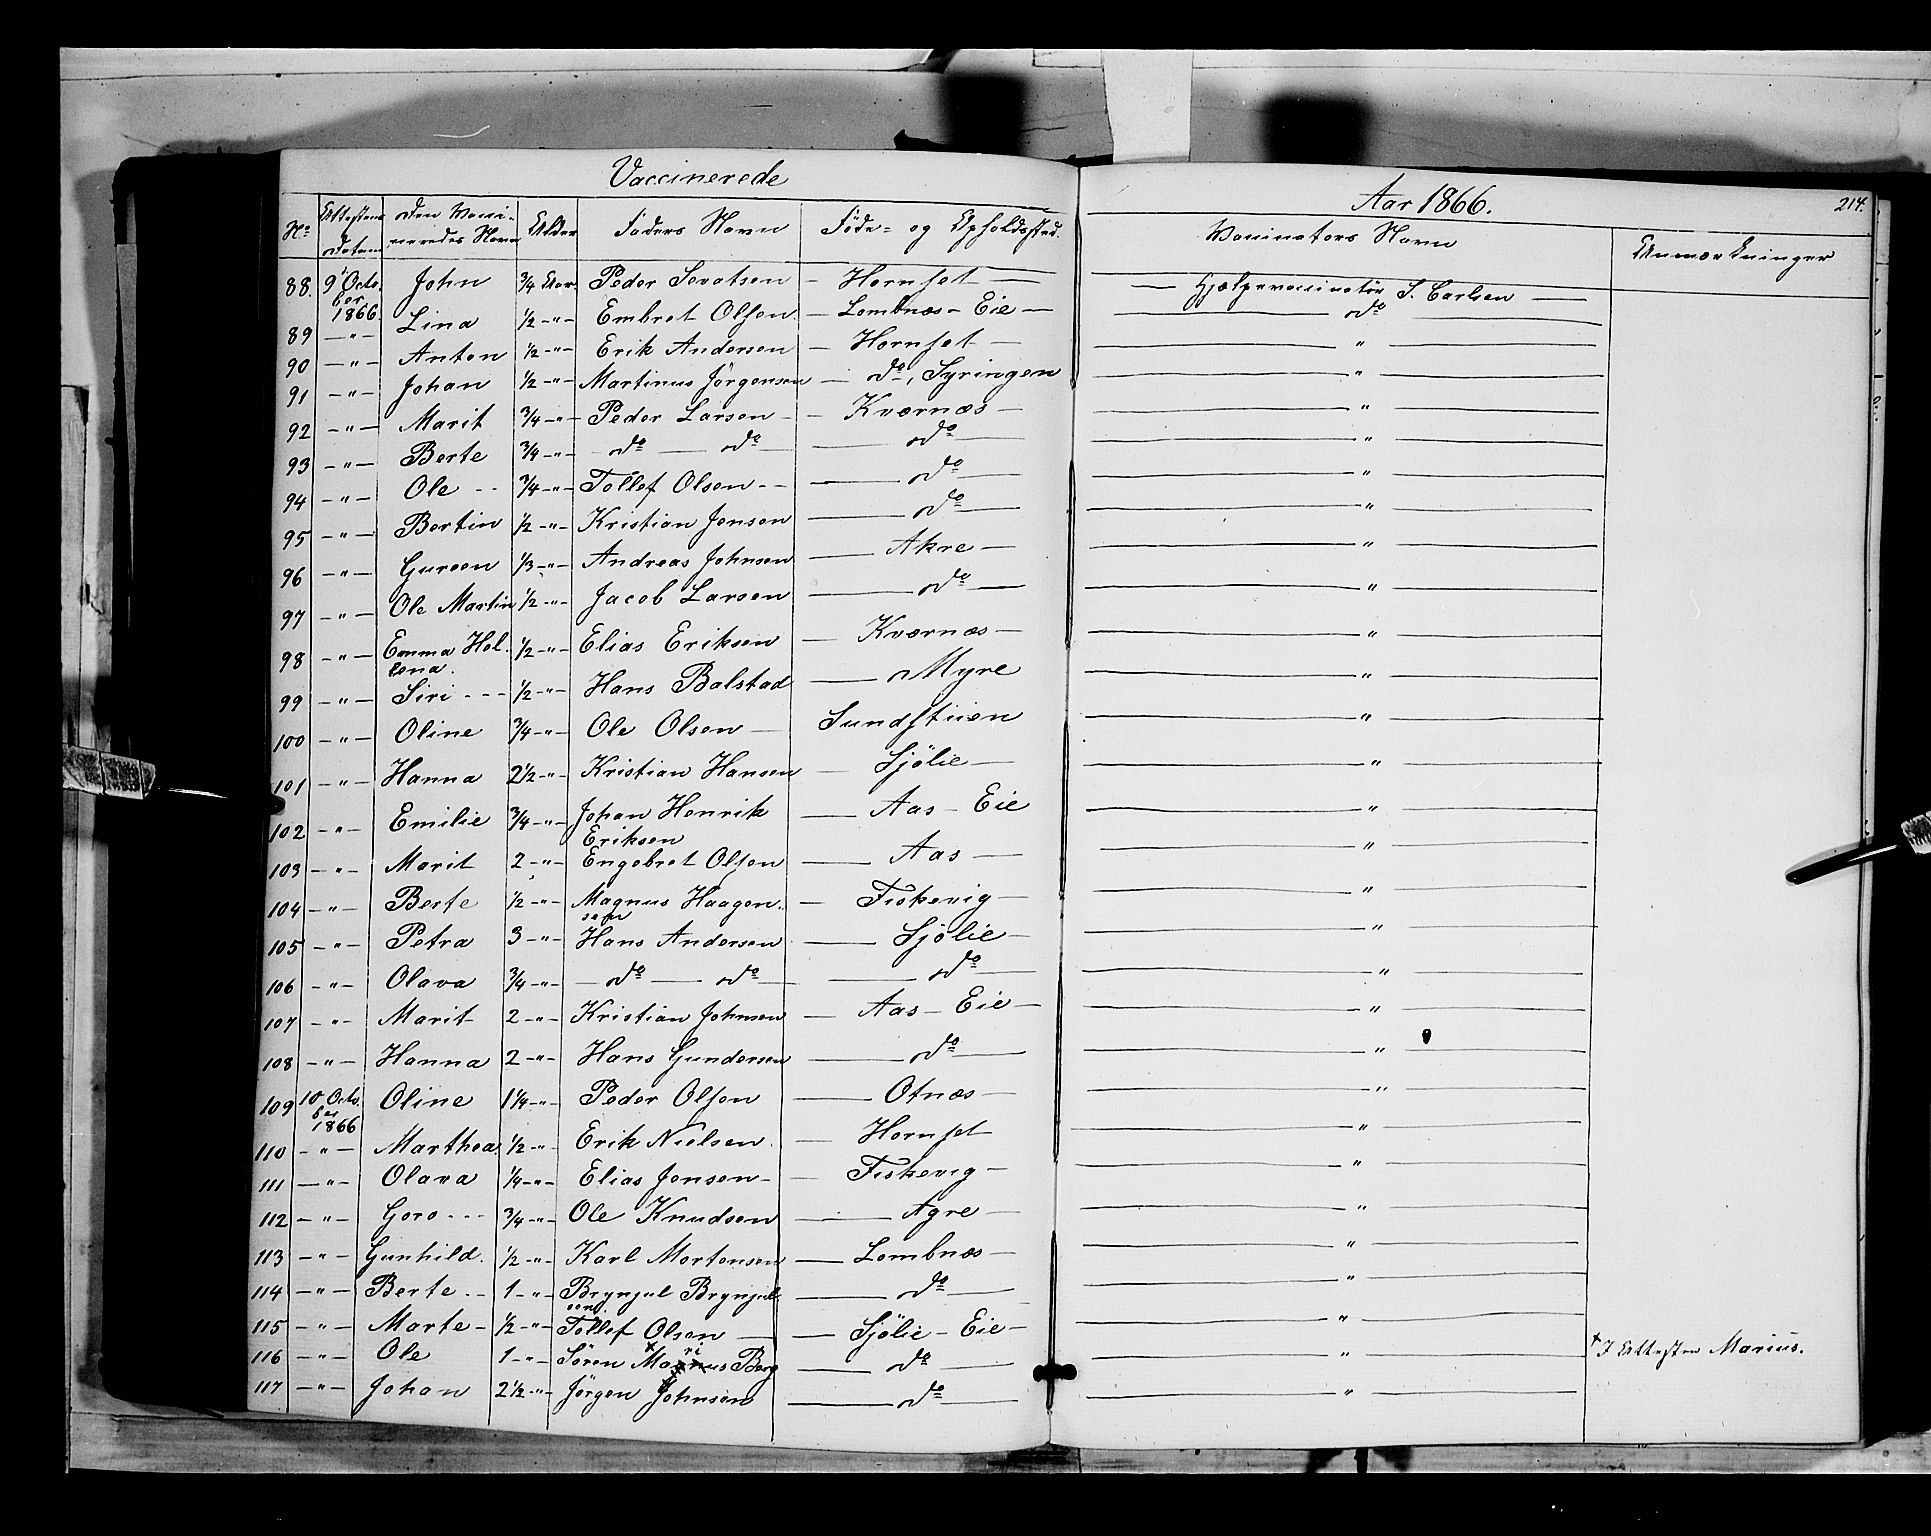 Vaccinerede
Aar 1866.
214.
No Attestens Datum Den Vacci-neredes Navn Alder Faders Navn Føde- og Opholdssted. Vaccinators Navn Anmærkninger
88. 9' Octo-ber 1866. John 3/4 Aar Peder Sevatsen – Hornset — — Hjælpevaccinatør S. Carlsen —
89 — " — Lina 1/2 – " – Embret Olsen. – Lombnæs – Eie — — do —
90 — " — Anton 1/2 – " – Erik Andersen – Hornset — — " —
91 — " — Johan 1/2 – " – Martinus Jörgensen — do, Syringen — " —
92 — " — Marit 3/4 – " – Peder Larsen – – Kværnæs — — " —
93 — " — Berte 3/4 – " – do — do — do — — " —
94 — " — Ole -- 3/4 – " – Tollef Olsen -- — do — — " —
95 — " — Bertin 1/2 – " – Kristian Jensen — do — — " —
96 — " — Gureen 1/3 – " – Andreas Johnsen — Akre — — " —
97 — " — Ole Martin 1/2 – " – Jacob Larsen — do — — " —
98 — " — Emma Hel-lena. 1/2 – " – Elias Eriksen — Kværnæs — — " —
99 — " — Siri --- 1/2 – " – Hans Balstad — Myre — " —
100 — " — Oline 3/4 – " – Ole Olsen — Sundstuen — " —
101 — " — Hanna 2 1/2 – " – Kristian Hansen — Sjölie — — " —
102 — " — Emilie 3/4 – " – Johan Henrik Eriksen — Aas – Eie — " —
103 — " — Marit 2 – " – Engebret Olsen — Aas — — " —
104 — " — Berte 1/2 – " – Magnus Haagen-sen — Fiskevig — — " —
105 — " — Petra 3 – " – Hans Andersen — Sjölie — — " —
106 — " — Olava 3/4 – " – — do — do — — do — — " —
107 — " — Marit 2 – " – Kristian Johnsen — Aas – Eie — — " —
108 — " — Hanna 2 – " – Hans Gundersen — do — — " —
109 10 Octo-ber 1866 Oline 1 1/4 – " – Peder Olsen — Otnæs — — " —
110 — " — Marthea 1/2 – " – Erik Nielsen. — Hornset — " —
111 — " — Olava 1/4 – " – Elias Jensen – — Fiskevig — — " —
112 — " — Goro --- 3/4 – " – Ole Knudsen — Agre — — " —
113 — " — Gunhild. 1/2 – " – Karl Mortensen — Lombnæs — — " —
114 — " — Berte -- 1 – " – Brynjul Brynjul-sen. — do — — " —
115 — " — Marte – 1/2 – " – Tollef Olsen — — Sjölie – Eie — — " —
116 — " — Ole 1 – " – Sören Marius Berg — do — — " — + I Attesten Marius.
117 — " — Johan 2 1/2 – " – Jörgen Johnsen — do — — " —